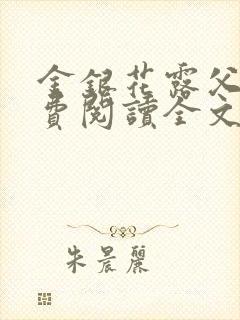 金銀花露父
費閱讀全文
朱晨麗